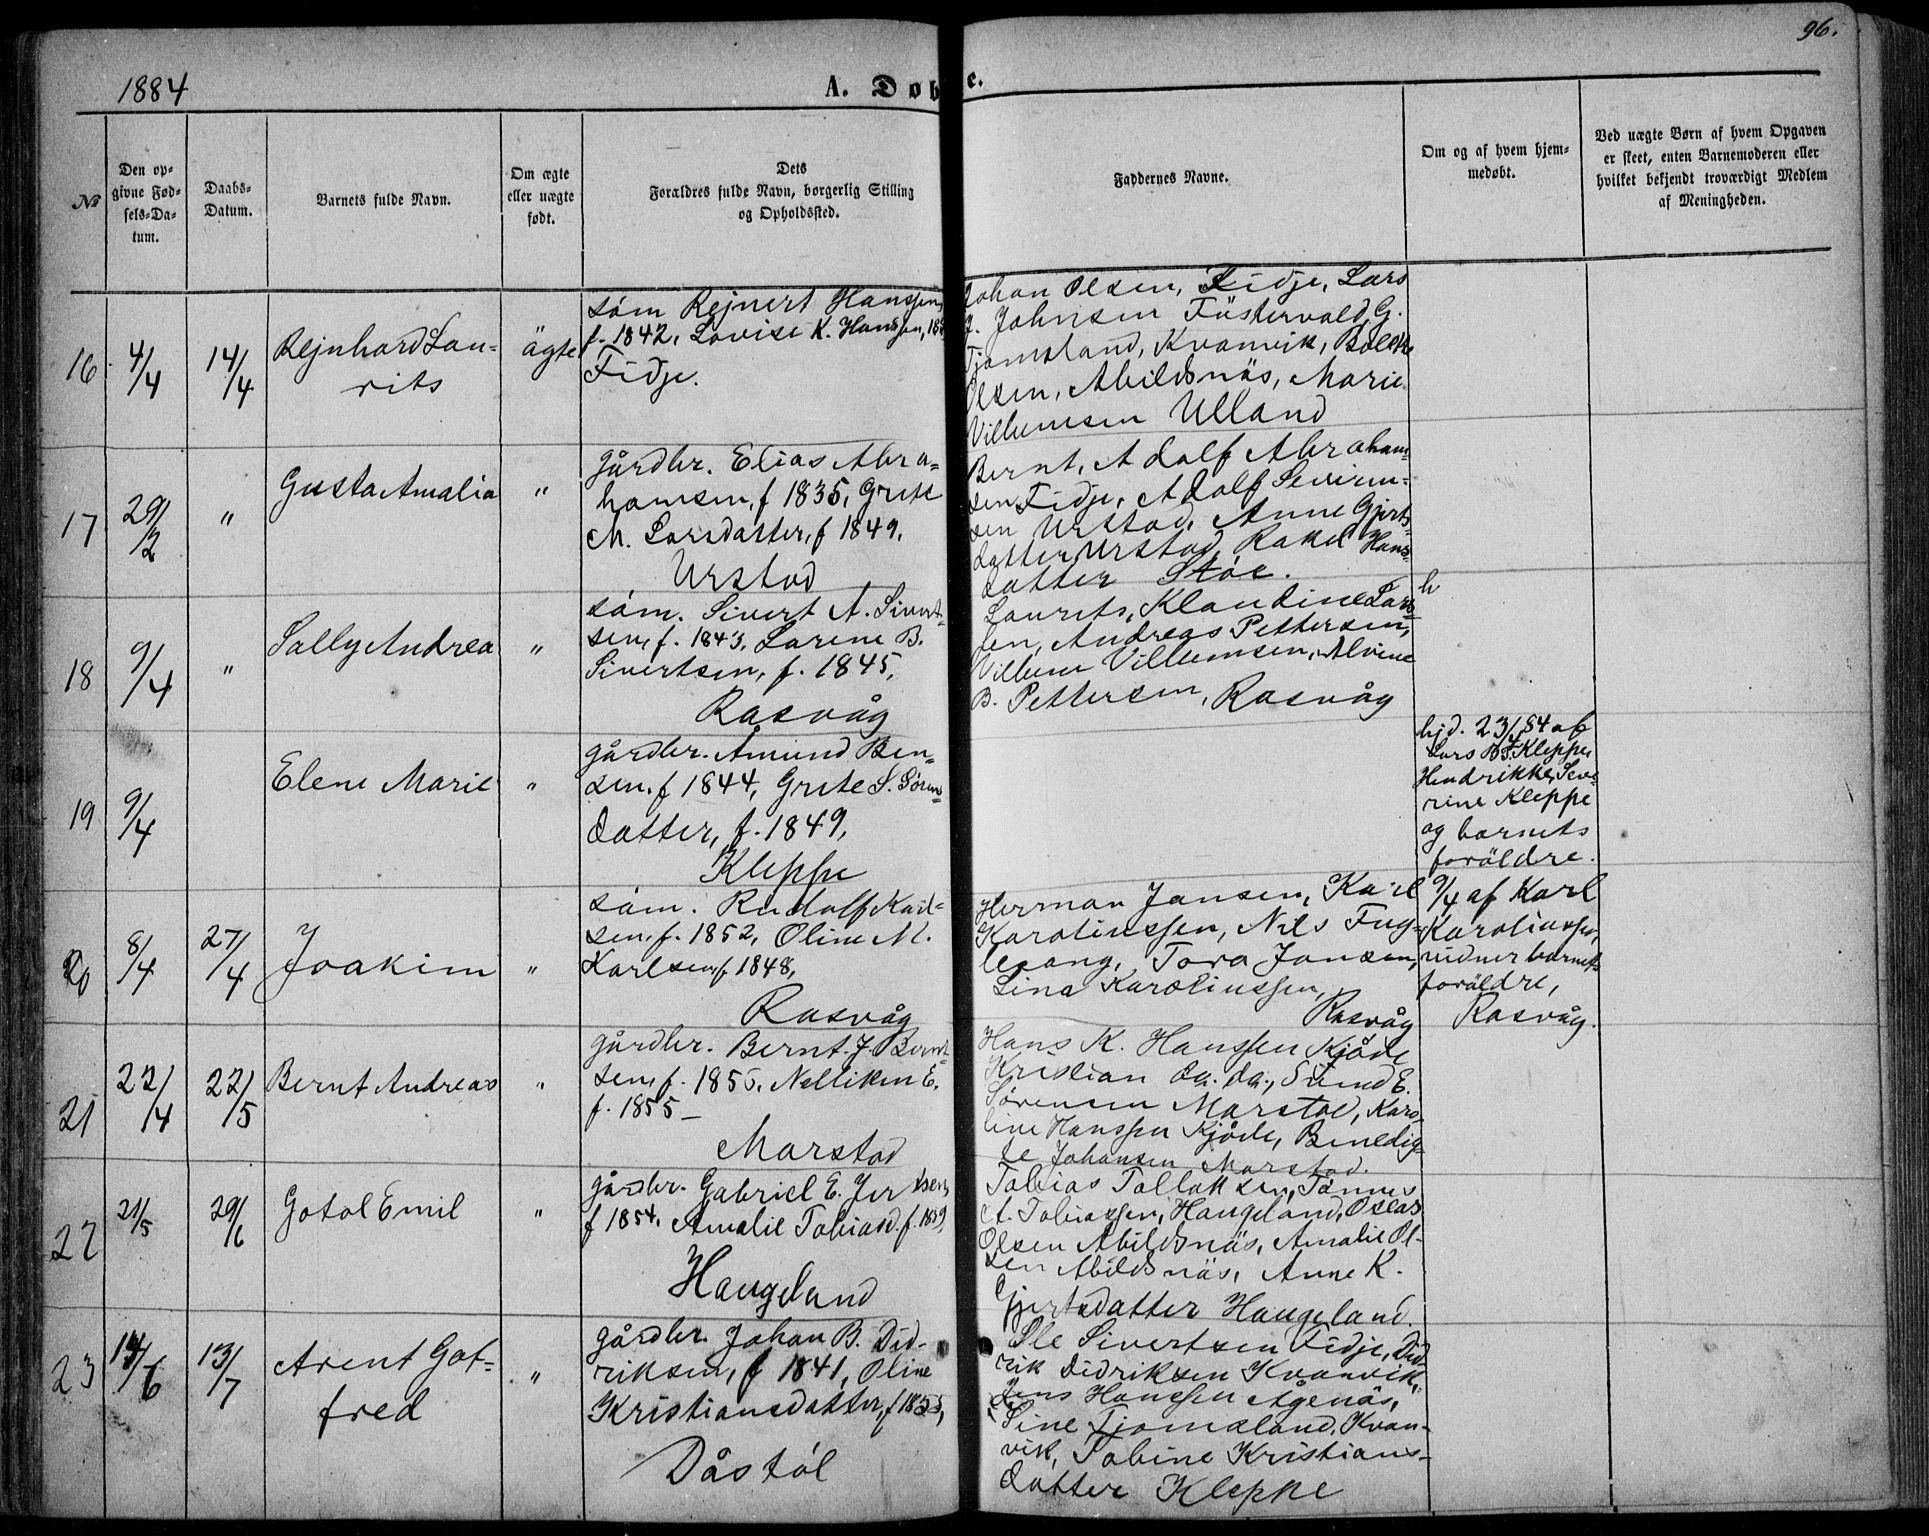 96.
1884
A. Døb
e.
No
Den op-
givne Fød-
sels-Da-
tum.
Daabs-
Datum.
Barnets fulde Navn.
Om ægte
eller uægte
født.
Dets
Forældres fulde Navn, borgerlig Stilling
og Opholdssted.
Faddernes Navne.
Om og af hvem hjem-
medøbt.
Ved uægte Børn af hvem Opgaven
er skeet, enten Barnemoderen eller
hvilket bekjendt troværdigt Medlem
af Meningheden.
16
4/4
14/4
Rejnhard Lau-
rits
ägte
söm Rejnert Hanssen,
f. 1842, Lovise K. Hanssen,
Fidje.
Johan Olsen, Fidje, Lars
J. Johnsen Füstervold, G.
Tjomsland, Kvanvik,
Olsen, Abildsnäs, Marie
Villumsen Ulland
17
29/2
"
Gusta Amalia
"
gårdbr. Elias Abra=
hamsen, f 1835, Grete
M. Larsdatter, f 1849.
Urstad
Bernt, Adolf Abraham=
sen Fidje, Adolf Severin=
sen Urstad, Anne Gjerts=
datter Urstad, Rakel Hans=
datter Stöe.
h
18
9/4
"
Sally Andrea
"
söm. Sivert A. Sivert-
sen, f. 1843, Larene B.
Sivertsen, f. 1845,
Rasvåg
Laurits, Klaudine Lars=
sen, Andreas Pettersen,
Villum Villumsen, Alvine
B. Pettersen, Rasvåg
19
9/4
Elene Marie
"
gårdbr. Amund Ben=
sen, f 1844, Grete S. Sörens=
datter, f. 1849,
Kleppe
hjd. 23/4 84 af
Lars B. Kleppe
Hendrikke, Seve
rine Kleppe
og barnets
foräldre.
20
8/4
27/4
Joakim
"
söm. Rudolf Karl-
sen, f. 1852, Oline M.
Karlsen, f. 1848,
Rasvåg
Herman Jansen, Karl
Karolinssen, Nils Fug-
lesang, Tora Jansen,
Lina Karolinssen,
Rasvåg
9/4 af Karl
Karolinssen,
vidner barnets
foräldre,
Rasvåg.
21
22/4
22/5
Bernt Andreas
"
gårdbr. Bernt J. Bernt-
sen, f. 1855, Nelliken E.
f. 1855 –
Marstad
Hans K. Hanssen Kjöde
Kristian da. da., E.
Sörensen Marstad, Karo
line Hanssen Kjöde, Benedig-
te Johansen Marstad.
22
21/5
29/6
Gotol Emil
"
gårdbr. Gabriel E.
f 1854, Amalie Tobiasd. f. 1859
Haugeland
Tobias Tollaksen, Tönnes
A. Tobiassen, Haugeland, Oseas
Olsen Abildsnäs, Amalie Ol-
sen Abildsnäs, Anne K.
Gjertsdatter Haugeland.
23
14/6
13/7
Arent Got=
fred
"
gårdbr. Johan B. Did-
riksen, f 1841, Oline
Kristiansdatter, f 1855,
Dåstöl
Ole Sivertsen Fidje, Did-
rik Didriksen Kvanvik,
Jens Hanssen Ågenäs,
Sine Tjomsland, Kvan-
vik, Tobine Kristians-
datter Kleppe